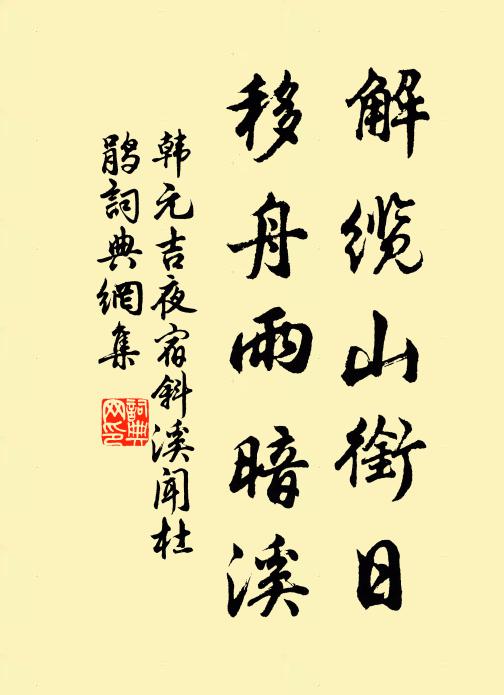 解缆山銜日
移舟雨暗溪
韩元吉夜宿斜溪闻杜
鹃詞典網集
詞典网印